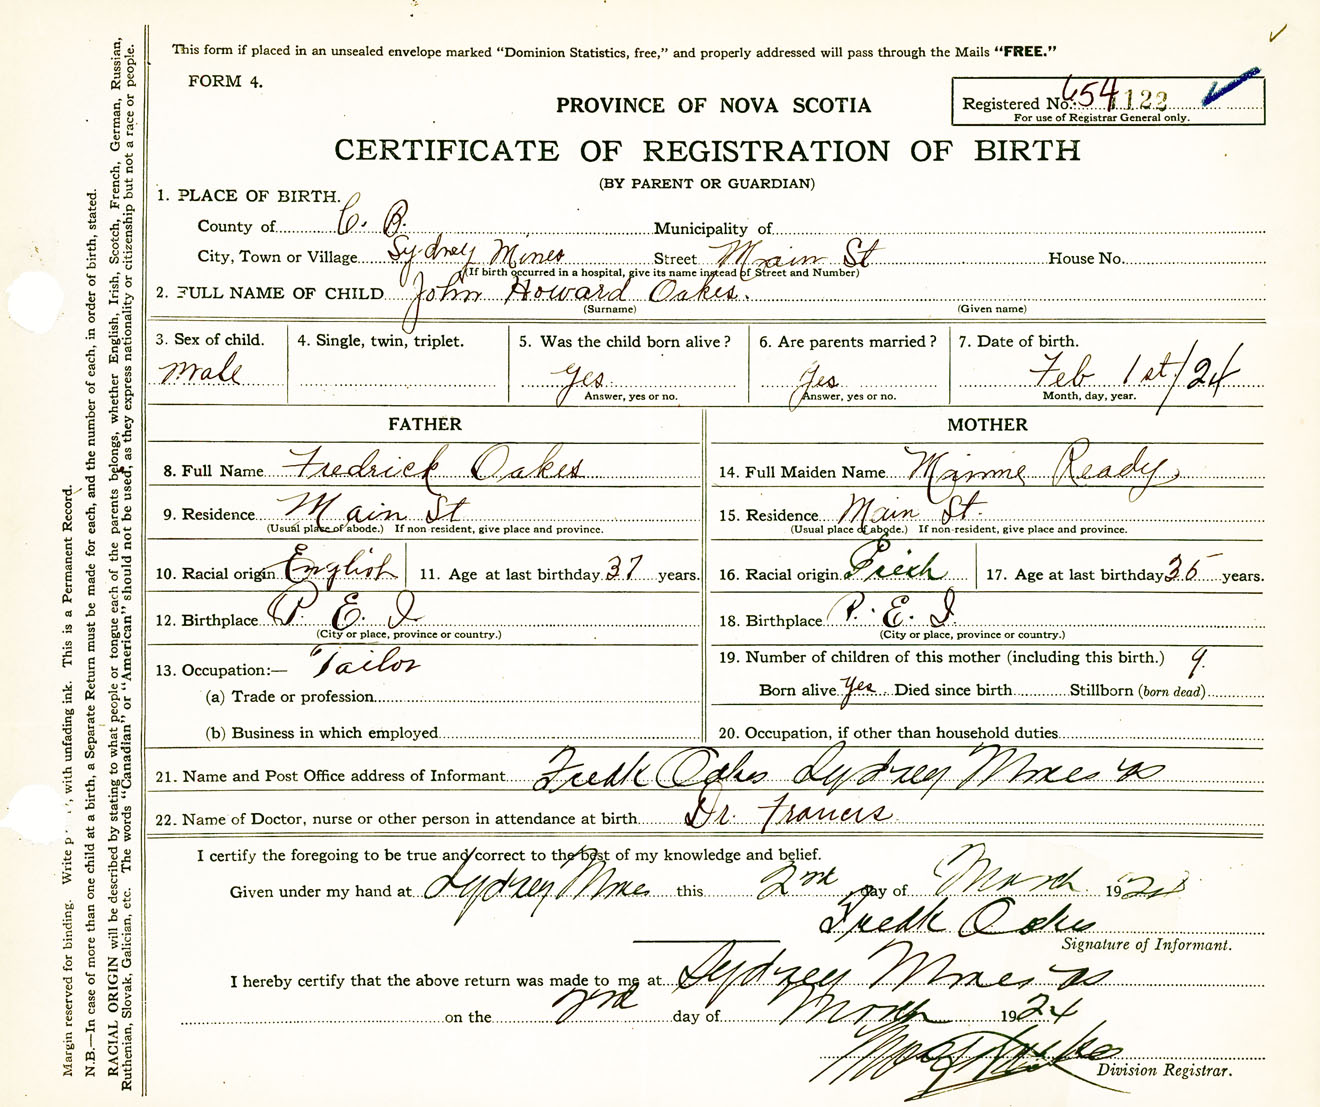 This form if placed in an unsealed envelope marked "Dominion Statistics, free," and properly addressed will pass through the Mails "FREE."
FORM 4.
PROVINCE OF NOVA SCOTIA
Registered No. 654 1122
For use of Registrar General only.
CERTIFICATE OF REGISTRATION OF BIRTH
(BY PARENT OR GUARDIAN)
1. PLACE OF BIRTH.
County of C. B. Municipality of
City, Town or Village Sydney Mines Street Main St House No.
(If birth occurred in a hospital, give its name instead of Street and Number)
2. FULL NAME OF CHILD John Howard Oakes.
(Surname) (Given name)
3. Sex of child. 4. Single, twin, triplet. 5. Was the child born alive? 6. Are parents married? 7. Date of birth.
Male Yes Yes Feb 1st/24
Answer, yes or no. Answer, yes or no. Month, day, year.
FATHER
8. Full Name Fredrick Oakes
9. Residence Main St
(Usual place of abode.) If non-resident, give place and province.
10. Racial origin English 11. Age at last birthday 37 years.
12. Birthplace P. E. I
(City or place, province or country.)
13. Occupation:— Tailor
(a) Trade or profession
(b) Business in which employed
MOTHER
14. Full Maiden Name Minnie Ready
15. Residence Main St.
(Usual place of abode.) If non-resident, give place and province.
16. Racial origin Irish 17. Age at last birthday 35 years.
18. Birthplace P. E. I.
(City or place, province or country.)
19. Number of children of this mother (including this birth.) 9.
Born alive yes Died since birth Stillborn (born dead)
20. Occupation, if other than household duties
21. Name and Post Office address of Informant Fredk Oakes Sydney Mines NS
22. Name of Doctor, nurse or other person in attendance at birth Dr. Francis
I certify the foregoing to be true and correct to the best of my knowledge and belief.
Given under my hand at Sydney Mines this 2nd day of March 1924
Fredk Oakes
Signature of Informant.
I hereby certify that the above return was made to me at Sydney Mines NS
on the 2nd day of March 1924
Division Registrar.
Margin reserved for binding. Write with unfading ink. This is a Permanent Record.
N.B.—In case of more than one child at a birth, a Separate Return must be made for each, and the number of each, in order of birth, stated.
RACIAL ORIGIN will be described by stating to what people or tongue each of the parents belongs, whether English, Irish, Scotch, French, German, Russian,
Ruthenian, Slovak, Galician, etc. The words "Canadian" or "American" should not be used, as they express nationality or citizenship but not a race or people.